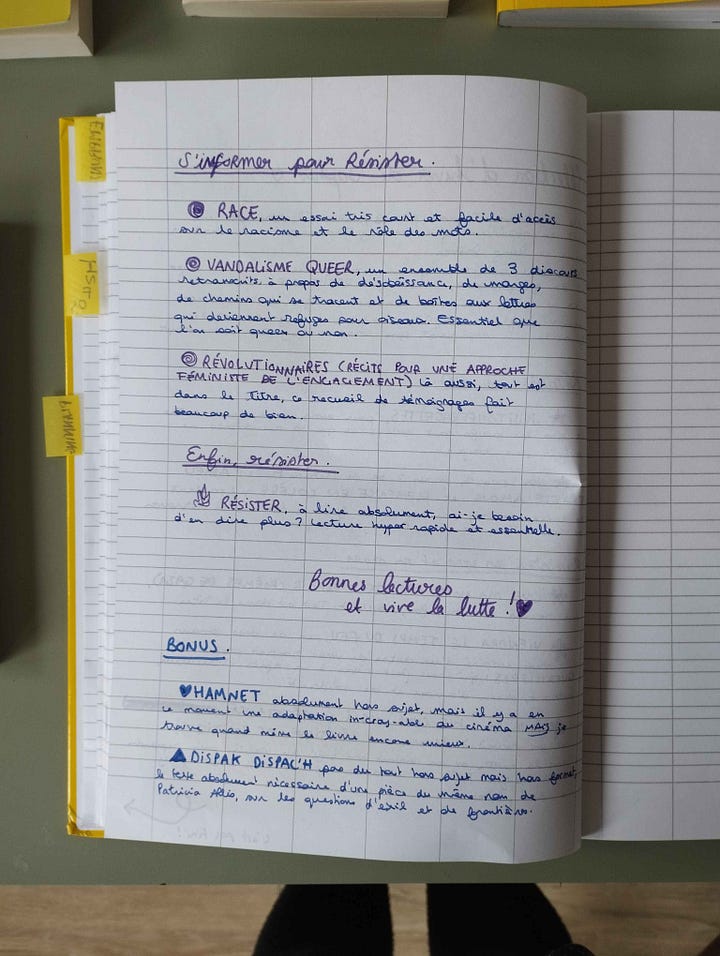 S'informer pour Résister.
RACE, un essai très court et facile d'accès
sur le racisme et le rôle des mots.
VANDALISME QUEER, un ensemble de 3 discours
retranscrits à propos de désobéissance, de marges,
de chemins qui se tracent et de boîtes aux lettres
qui deviennent refuges pour oiseaux. Essentiel que
l'on soit queer ou non.
RÉVOLUTIONNAIRES (RÉCITS POUR UNE APPROCHE
FÉMINISTE DE L'ENGAGEMENT) là aussi, tout est
dans le titre, ce recueil de témoignages fait
beaucoup de bien.
Enfin, résister.
RÉSISTER, à lire absolument, ai-je besoin
d'en dire plus ? Lecture hyper rapide et essentielle.
Bonnes lectures
et vive la lutte !
BONUS.
HAMNET absolument hors sujet, mais il y a en
ce moment une adaptation in-croy-able au cinéma MAIS je
trouve quand même le livre encore mieux.
DISPAK DISPAC'H pas du tout hors sujet mais hors format,
le texte absolument nécessaire d'une pièce du même nom de
Patricia Allio, sur les questions d'exil et de frontières.